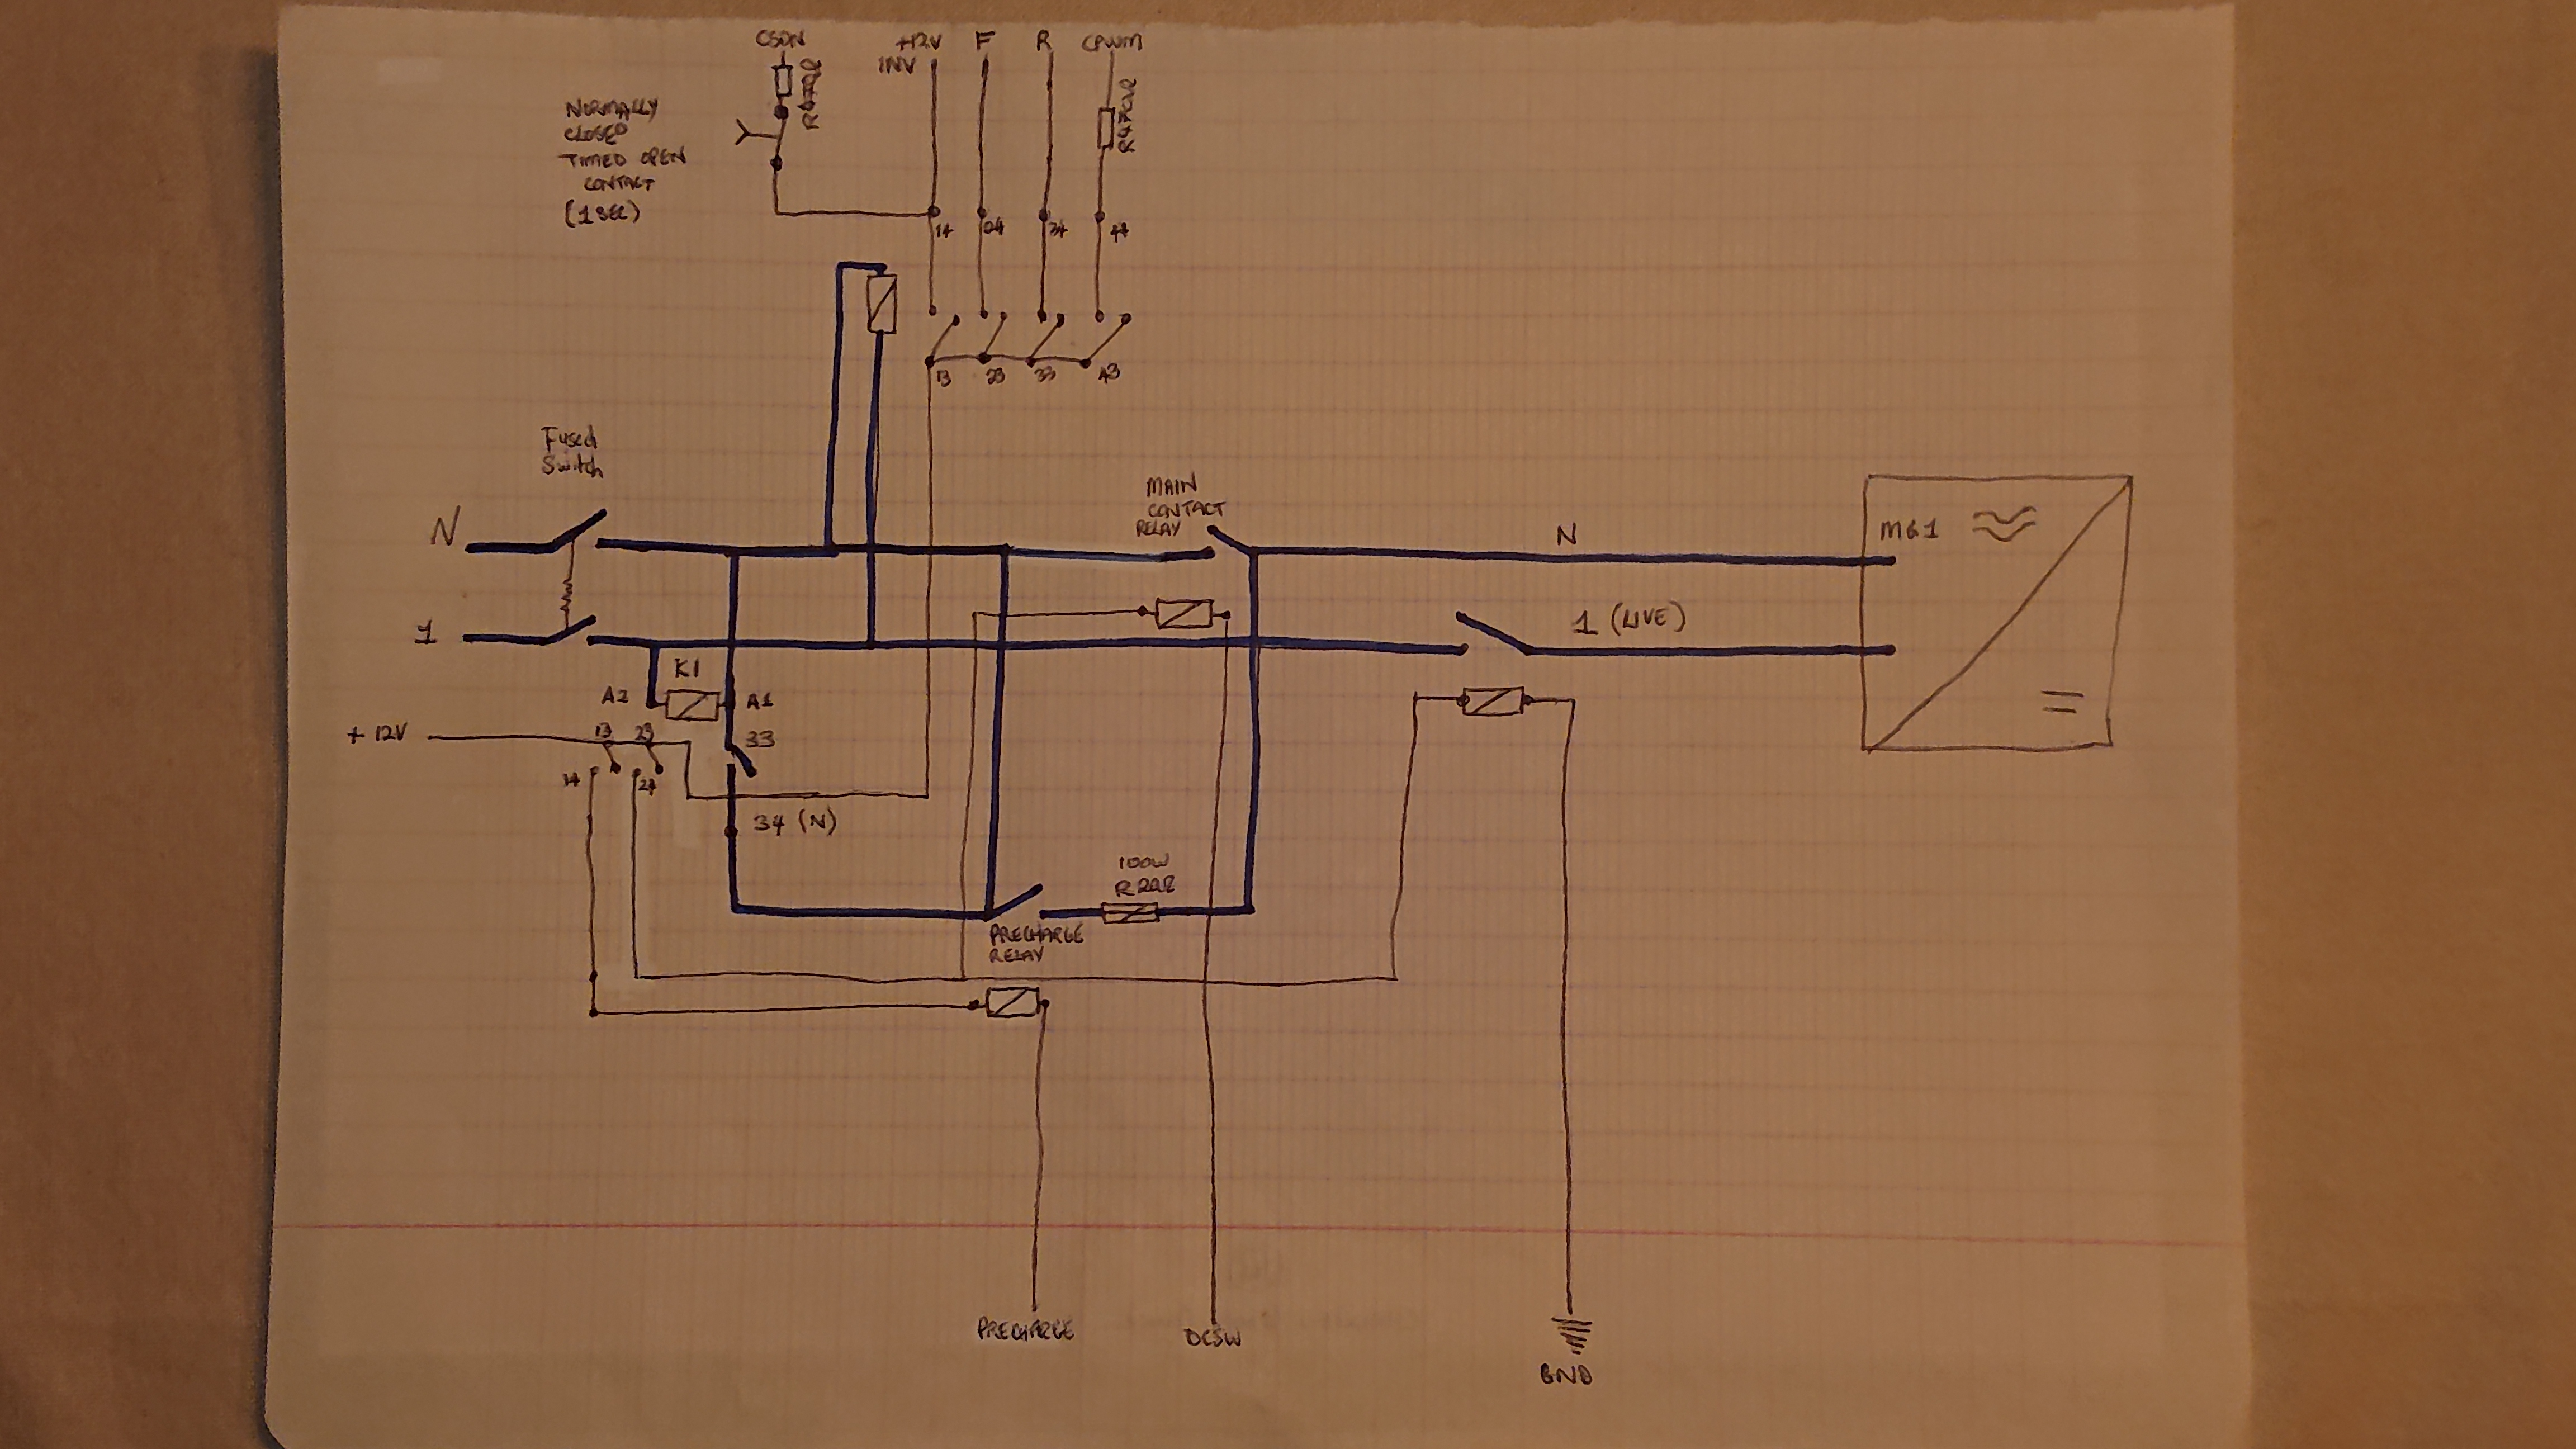 CSDN
+12V
INV
F
R
CPWM
R470Ω
R470Ω
NORMALLY
CLOSED
TIMED OPEN
CONTACT
(1 SEC)
14
24
34
44
13
23
33
43
Fused
Switch
N
1
MAIN
CONTACT
RELAY
N
MG1
1 (LIVE)
K1
A2
A1
+ 12V
13
23
33
14
24
34 (N)
100W
R22Ω
PRECHARGE
RELAY
PRECHARGE
DCSW
GND